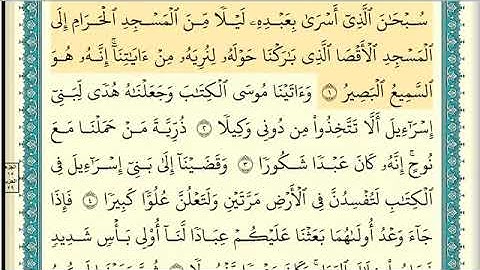 سُبْحَٰنَ ٱلَّذِىٓ أَسْرَىٰ بِعَبْدِهِۦ لَيْلًا مِّنَ ٱلْمَسْجِدِ ٱلْحَرَامِ إِلَى
ٱلْمَسْجِدِ ٱلْأَقْصَا ٱلَّذِى بَٰرَكْنَا حَوْلَهُۥ لِنُرِيَهُۥ مِنْ ءَايَٰتِنَآ ۚ إِنَّهُۥ هُوَ
ٱلسَّمِيعُ ٱلْبَصِيرُ ١ وَءَاتَيْنَا مُوسَى ٱلْكِتَٰبَ وَجَعَلْنَٰهُ هُدًى لِّبَنِىٓ
إِسْرَٰٓءِيلَ أَلَّا تَتَّخِذُوا۟ مِن دُونِى وَكِيلًا ٢ ذُرِّيَّةَ مَنْ حَمَلْنَا مَعَ
نُوحٍ ۚ إِنَّهُۥ كَانَ عَبْدًا شَكُورًا ٣ وَقَضَيْنَآ إِلَىٰ بَنِىٓ إِسْرَٰٓءِيلَ فِى
ٱلْكِتَٰبِ لَتُفْسِدُنَّ فِى ٱلْأَرْضِ مَرَّتَيْنِ وَلَتَعْلُنَّ عُلُوًّا كَبِيرًا ٤ فَإِذَا
جَآءَ وَعْدُ أُولَىٰهُمَا بَعَثْنَا عَلَيْكُمْ عِبَادًا لَّنَآ أُو۟لِى بَأْسٍ شَدِيدٍ